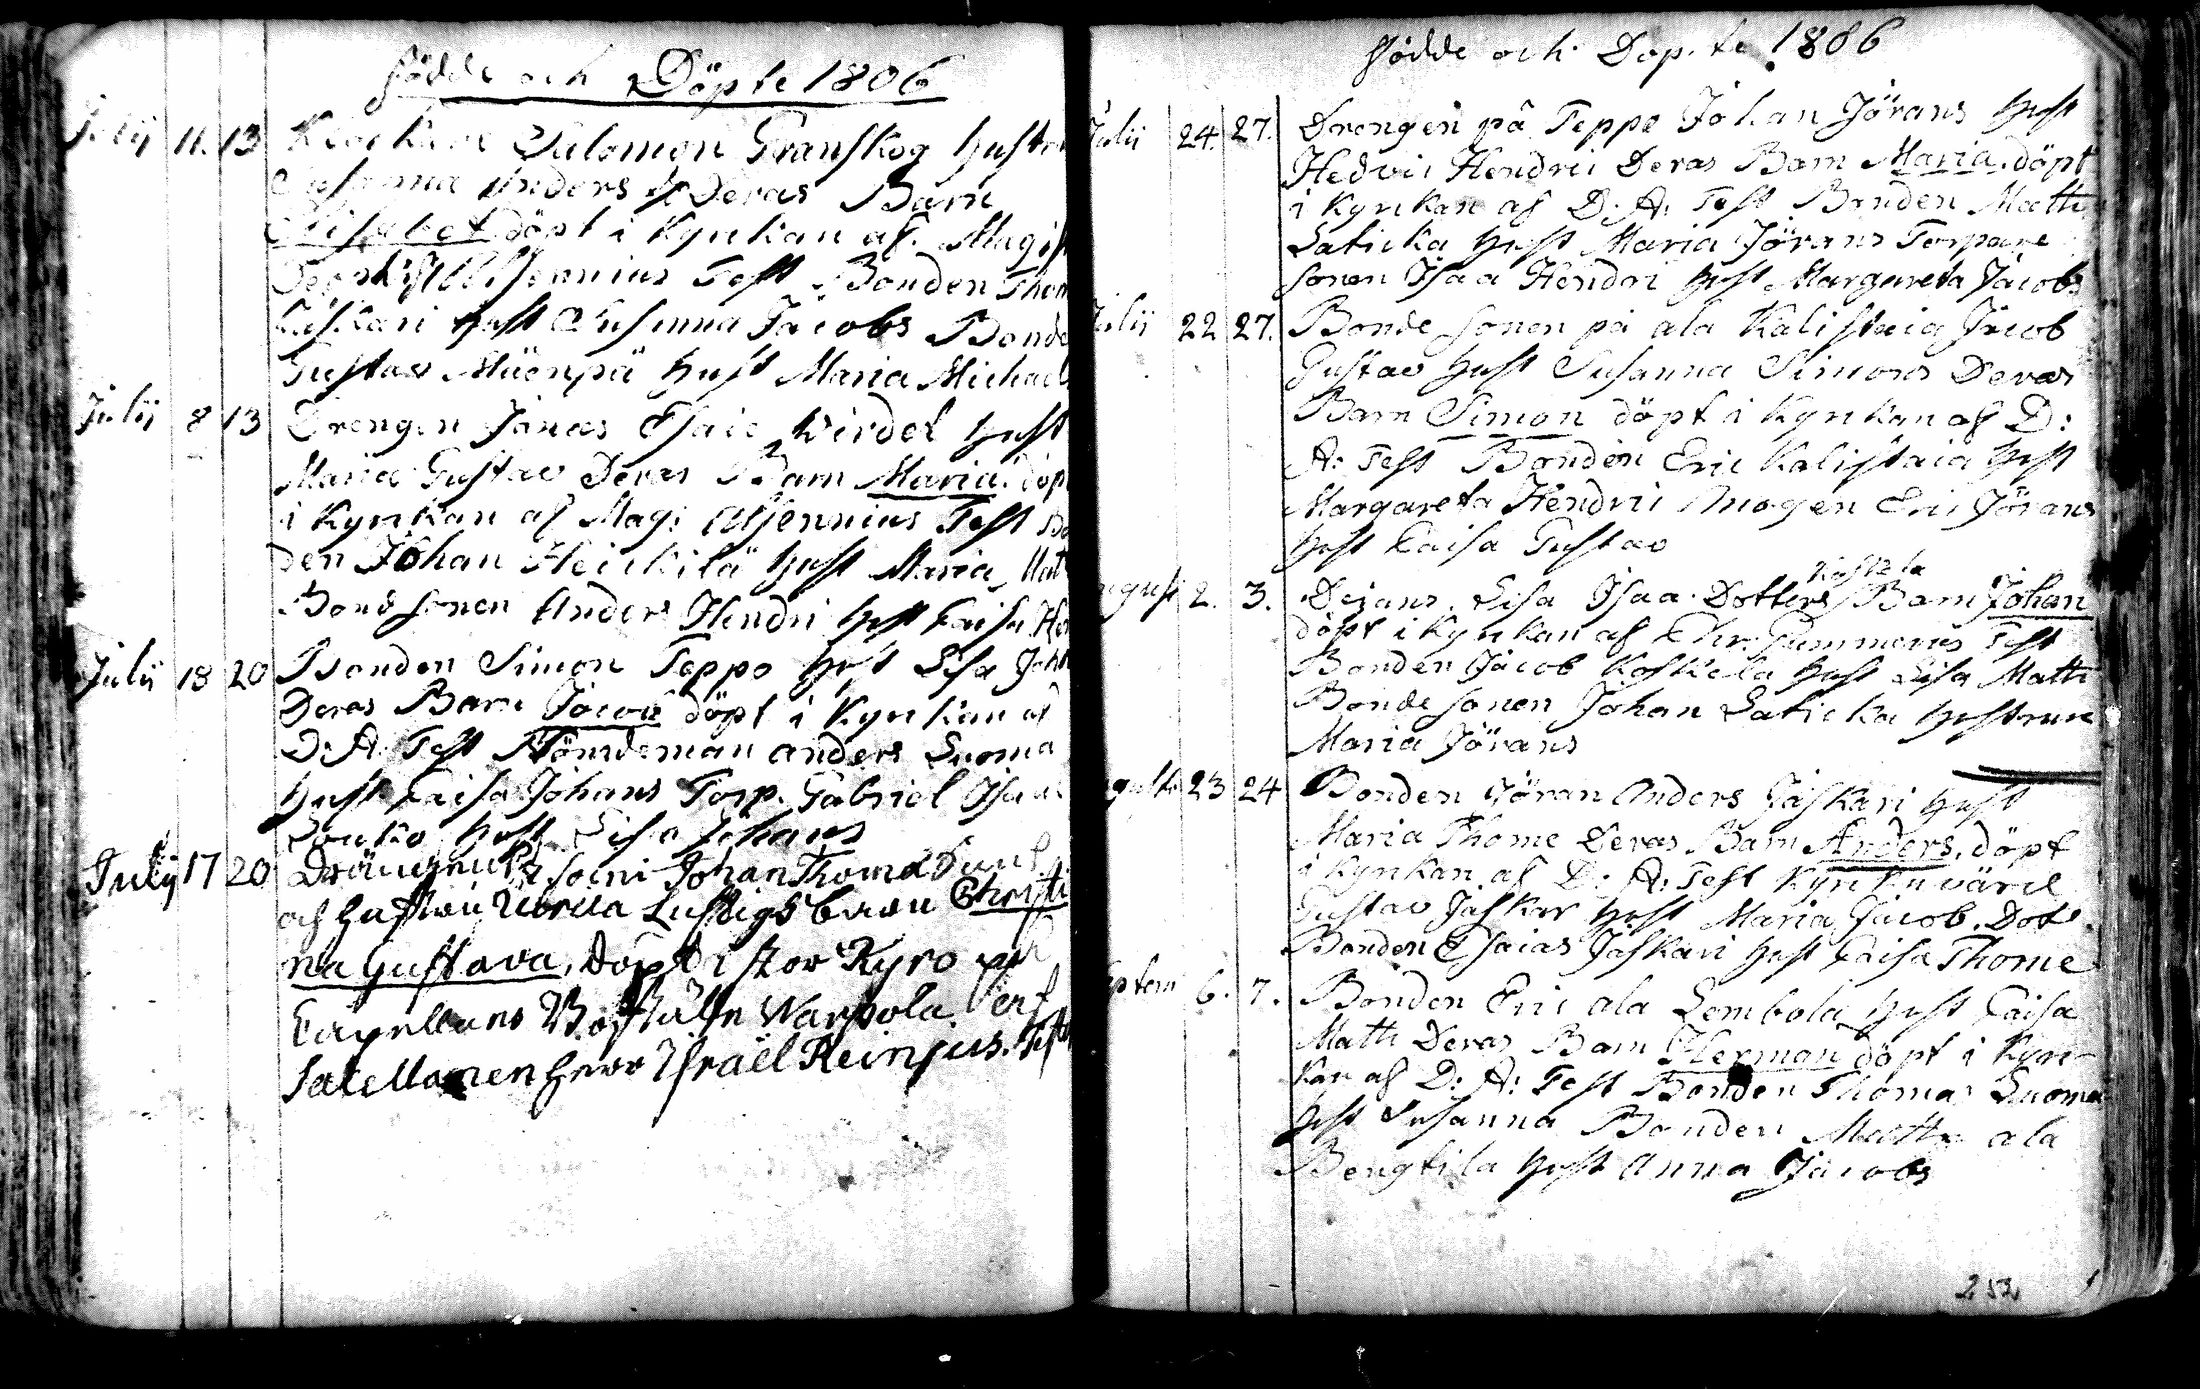 födde och Döpte 1806
Julij 11. 13 Klockare Salomon Granskog hustru
Susanna Anders Deras Barn
Elisabet döpt i Kyrkan af Magist
Alsennius Test Bonden Thom
Kåskari hust Susanna Jacobs Bonde
Gustav Mäenpä hust Maria Michaels
Julij 8 13 Drengen Jonas Esaie Wirdet hust
Maria Gustav Deras Barn Maria döpt
i Kyrkan af Mag: Alsennius Test Bo
den Johan Heickilä hust Maria Mat
Bond sonen Anders Hendri hust Caisa
Julij 18 20 Bonden Simon Teppo hust Lisa Joh
Deras Barn Jacob döpt i Kyrkan af
D: A: Test Nämdeman anders Luoma
hust Caisa Johans Torp. Gabriel Isaac
Louko hust Lisa Johans
July 17 20 Johan Thomæ
och hustru Ulrica Lustigs barn Christi
na Gustava, döpt i Stor Kyro på
Capellans Boställe Warpola af
Sacellanen herr Israël Reinius. Test
födde och Döpte 1806
Julij 24. 27. Drengen på Teppo Johan Jörans hust
Hedvi Hendrii Deras Barn Maria. döpt
i Kyrkan af D: A: Test Bonden Matts
Laticka hust Maria Jörans Torpare
sonen Isaa Hendri hust Margareta Jacobs
Julij 22 27. Bonde sonen på ala Kalistaia Jacob
Gustav hust Susanna Simons Deras
Barn Simon döpt i Kyrkan af D:
A: Test Bonden Eric Kalistaia hust
Margareta Hendrii Mågen Eric Jörans
hust Caisa Gustav
Koskela
august 2. 3. Lisa Isaa Dotters Barn Johan
döpt i Kyrkan af Ehr: Gummerus Test
Bonden Jacob Koskela hust Lisa Matts
Bonde sonen Johan Laticka hustrun
Maria Jörans
23 24 Bonden Jöran Anders Jåskari hust
Maria Thome Deras Barn Anders, döpt
i Kyrkan af D: A: Test Kyrkovärd
Gustav Jåskar hust Maria Jacob. Dot.
Bonden Esaias Jåskari hust Caisa Thome
ptem 6. 7. Bonden Eric ala Lembola hust Caisa
Matts Deras Barn Herman döpt i Kyr-
kan af D: A: Test Bonden Thomas Luoma
hust Susanna Bonden Matts ala
Bengtila hust Anna Jacobs
252